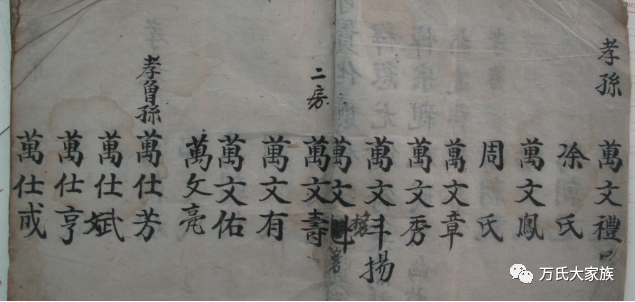 孝孫
萬文禮
凃氏
萬文鳳
周氏
萬文章
萬文秀
萬文丰揚
萬文魁
二房
萬文壽
萬文有
萬文佑
萬文亮
孝曾孫
萬仕芳
萬仕斌
萬仕亨
萬仕
万氏大家族